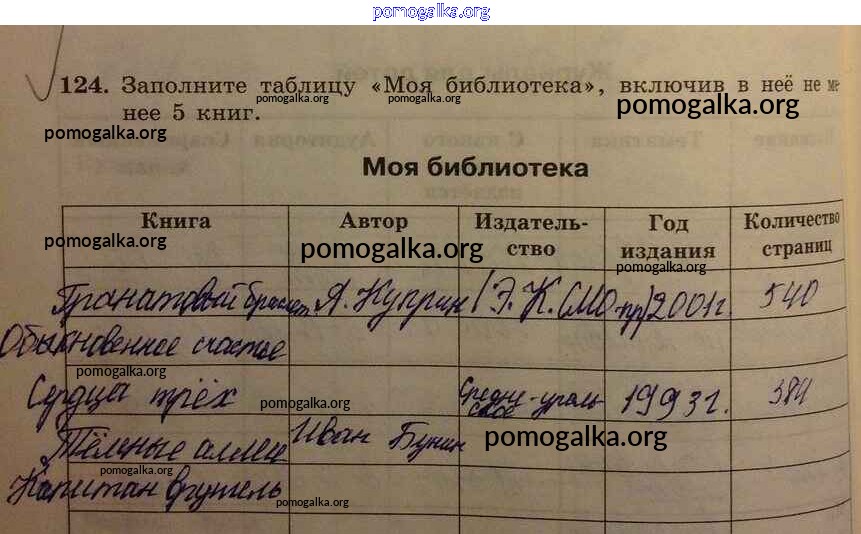 pomogalka.org
124. Заполните таблицу «Моя библиотека», включив в неё не ме-
pomogalka.org
pomogalka.org
pomogalka.org
нее 5 книг.
pomogalka.org
Моя библиотека
Книга Автор Издатель- Год Количество
ство издания страниц
pomogalka.org
pomogalka.org
pomogalka.org
Гранатовый браслет А. Куприн 2001г. 540
Обыкновенное счастье
pomogalka.org
Сердца трёх Средне-ураль 1993г. 384
ское
pomogalka.org
Тёмные аллеи Иван Бунин
pomogalka.org
pomogalka.org
Капитан Врунгель
pomogalka.org